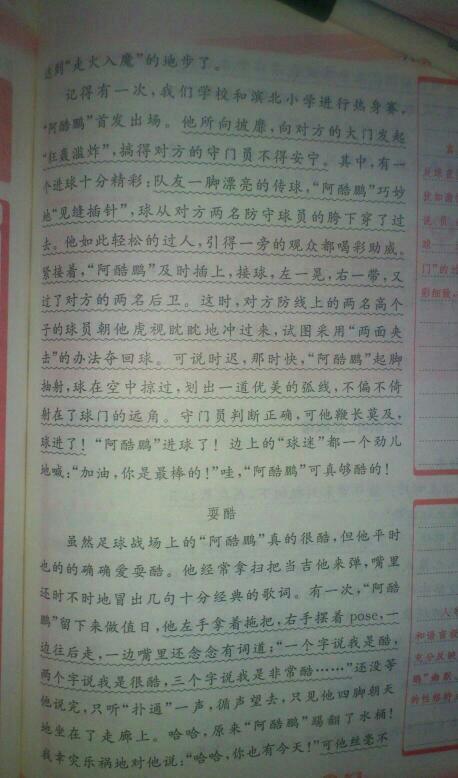 达到“走火入魔”的地步了。
记得有一次，我们学校和滨北小学进行热身赛，
“阿酷鹏”首发出场。他所向披靡，向对方的大门发起
“狂轰滥炸”，搞得对方的守门员不得安宁。其中，有一
个进球十分精彩：队友一脚漂亮的传球，“阿酷鹏”巧妙
地“见缝插针”，球从对方两名防守球员的胯下穿了过
去。他如此轻松的过人，引得一旁的观众都喝彩助威。
紧接着，“阿酷鹏”及时插上，接球，左一晃，右一带，又
过了对方的两名后卫。这时，对方防线上的两名高个
子的球员朝他虎视眈眈地冲过来，试图采用“两面夹
击”的办法夺回球。可说时迟，那时快，“阿酷鹏”起脚
抽射，球在空中掠过，划出一道优美的弧线，不偏不倚
射在了球门的远角。守门员判断正确，可他鞭长莫及，
球进了！“阿酷鹏”进球了！边上的“球迷”都一个劲儿
地喊：“加油，你是最棒的！”哇，“阿酷鹏”可真够酷的！
耍酷
虽然足球战场上的“阿酷鹏”真的很酷，但他平时
也的的确确爱耍酷。他经常拿扫把当吉他来弹，嘴里
还时不时地冒出几句十分经典的歌词。有一次，“阿酷
鹏”留下来做值日，他左手拿着拖把，右手摆着pose，一
边往后走，一边嘴里还念念有词道：“一个字说我是酷，
两个字说我是很酷，三个字说我是非常酷……”还没等
他说完，只听“扑通”一声，循声望去，只见他四脚朝天
地坐在了走廊上。哈哈，原来“阿酷鹏”踢翻了水桶！
我幸灾乐祸地对他说：“哈哈，你也有今天！”可他丝毫不
反球
犹如激
说员
球
门”的
彩细致，
人
和语言
充分反映
鹏”幽默、
的性格特